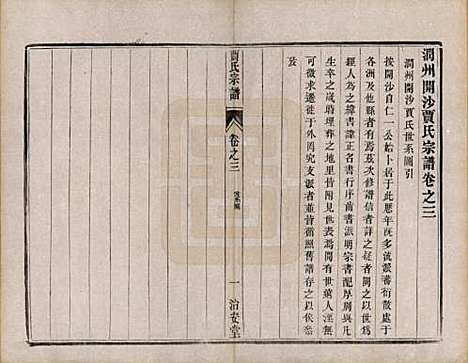 潤州開沙賈氏宗譜卷之三
潤州開沙賈氏世系圖引
按開沙自仁一公始卜居于此歷年既多流派蕃衍散處于
各洲及他縣者有焉茲次修譜信者詳之疑者闕之以世系爲
經人爲緯書諱正其名書字書派明宗書配厚別與夫
生卒之歲時埋葬之地里靡不備
可徵求遷徙于外罔究支派者並皆循照舊譜存之以俟考
及
賈氏宗譜
卷之三
世系圖
一
治安堂